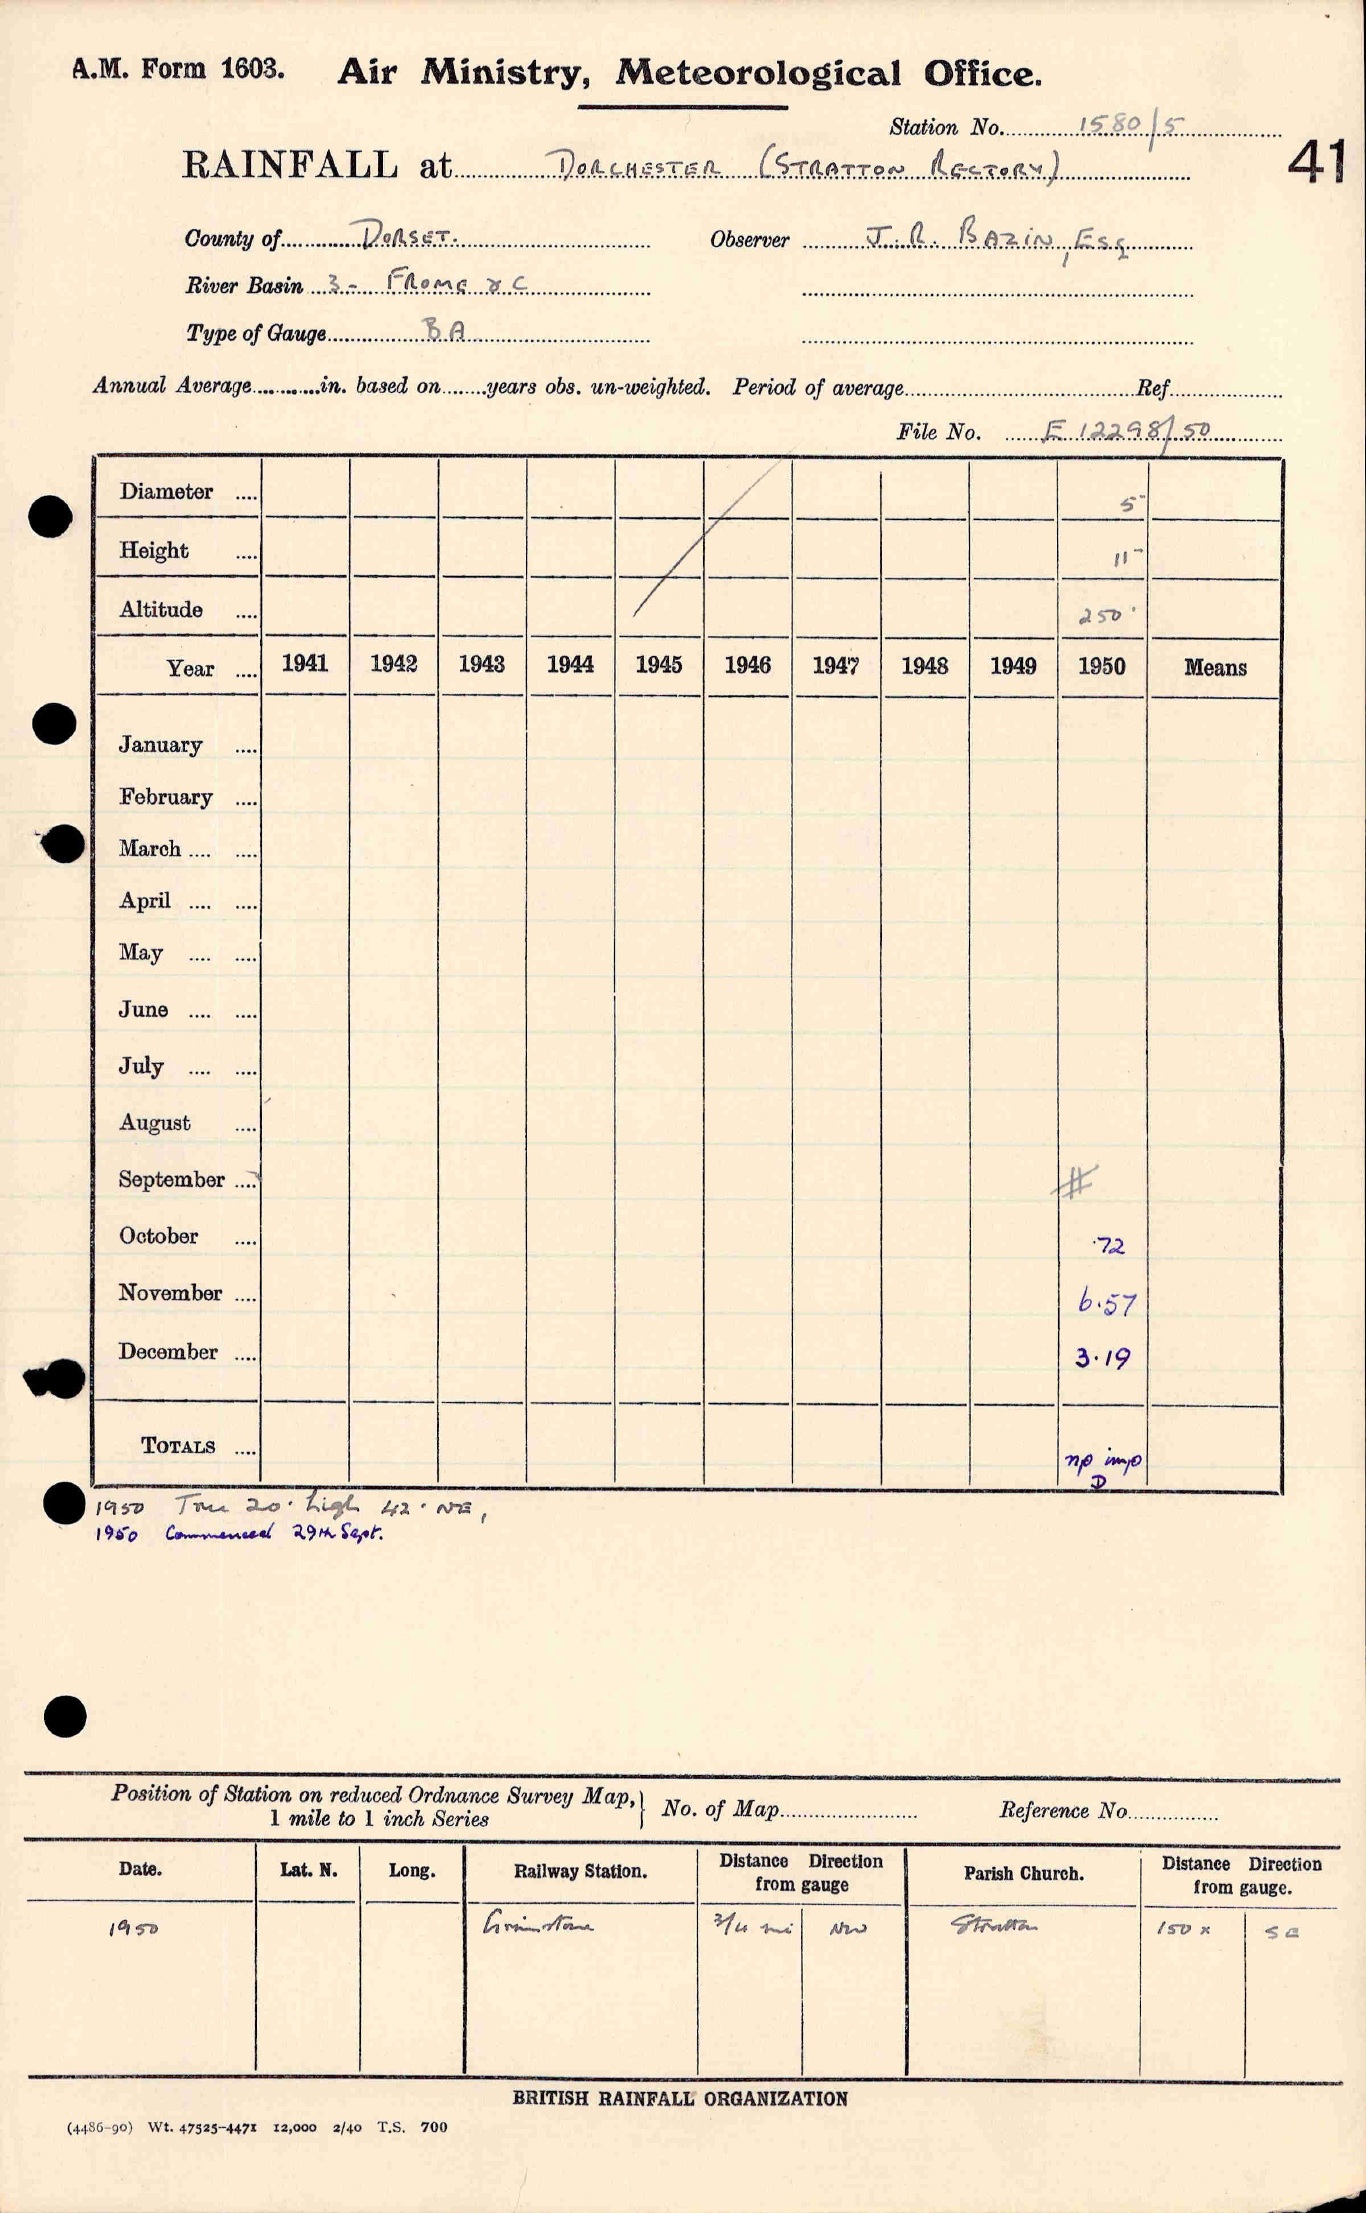 A.M. Form 1603. Air Ministry, Meteorological Office.
Station No. 1580/5
41
RAINFALL at DORCHESTER (STRATTON RECTORY)
County of DORSET. Observer J. R. BAZIN, ESQ
River Basin 3 - FROME & C
Type of Gauge BA
Annual Average in. based on years obs. un-weighted. Period of average Ref
File No. E 12298/50
Diameter 5"
Height 11"
Altitude 250'
Year 1941 1942 1943 1944 1945 1946 1947 1948 1949 1950 Means
January
February
March
April
May
June
July
August
September #
October ·72
November 6·57
December 3·19
TOTALS np imp
D
1950 Tree 20' high 42' NE,
1950 Commenced 29th Sept.
Position of Station on reduced Ordnance Survey Map, } No. of Map Reference No
1 mile to 1 inch Series
Date. Lat. N. Long. Railway Station. Distance Direction from gauge Parish Church. Distance Direction from gauge.
1950 Grimstone 3/4 mi NW Stratton 150 x SE
BRITISH RAINFALL ORGANIZATION
(4486-90) Wt. 47525-4471 12,000 2/40 T.S. 700